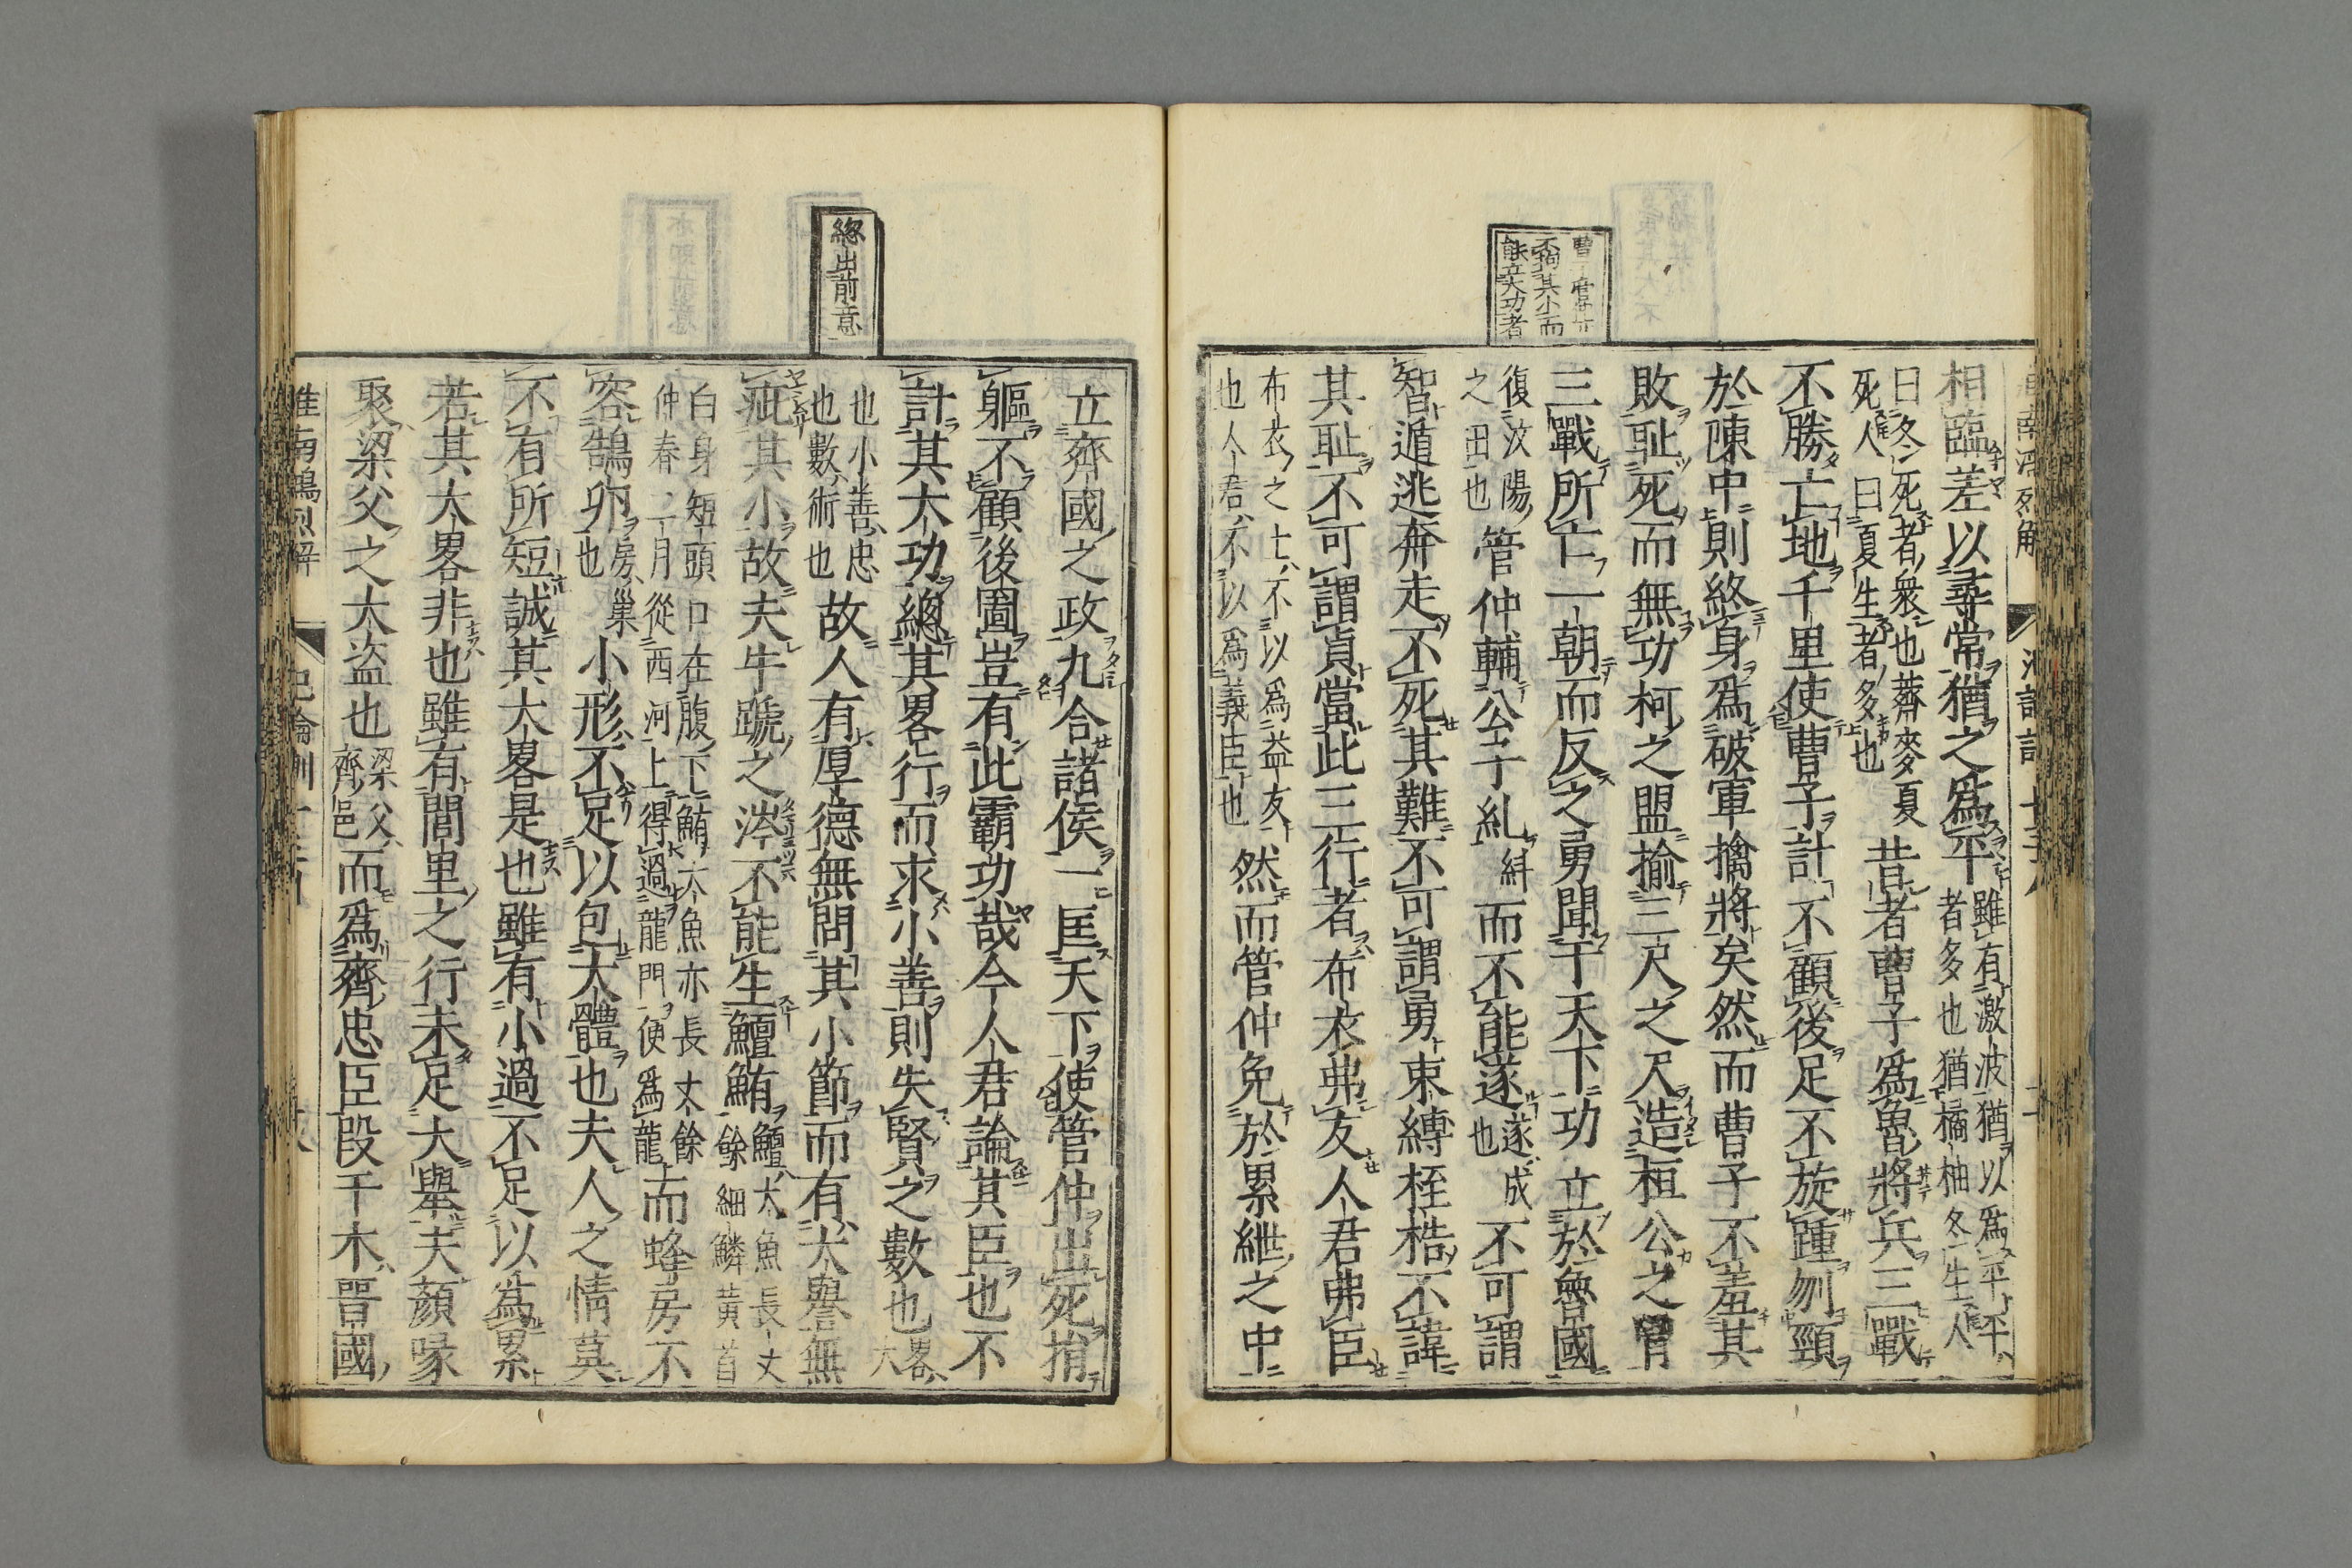 曹子管仲皆
不拘其小而
能立大功者
相臨差以尋常猶之爲平雖有激波猶以爲平平者多也猶橘柚冬生人
曰冬死者衆也薺麥夏死人曰夏生者多也昔者曹子爲魯將兵三戰
不勝亡地千里使曹子計不顧後足不旋踵刎頸
於陳中則終身爲破軍擒將矣然而曹子不羞其
敗耻死而無功柯之盟揄三尺之刃造桓公之胷
三戰所亡一朝而反之勇聞于天下功立於魯國
復汶陽之田也管仲輔公子糺糾而不能遂遂成也不可謂
智遁逃奔走不死其難不可謂勇束縛桎梏不諱
其耻不可謂貞當此三行者布衣弗友人君弗臣
布衣之士不以爲益友也人君不以爲義臣也然而管仲免於累紲之中
總出前意
立齊國之政九合諸侯一匡天下使管仲出死捐
軀不顧後圖豈有此霸功哉今人君論其臣也不
計其大功總其畧行而求小善則失賢之數也畧大
也小善忠也數術也故人有厚德無問其小節而有大譽無
疵其小故夫牛蹏之涔不能生鱣鮪鱣大魚長丈餘細鱗黃首
白身短頭口在腹下鮪大魚亦長丈餘仲春二月從西河上得過龍門便爲龍而蜂房不
容鵠卵房巢也小形不足以包大體也夫人之情莫
不有所短誠其大畧是也雖有小過不足以爲累
若其大畧非也雖有閭里之行未足大舉夫顏喙
聚梁父之大盜也梁父齊邑而爲齊忠臣段干木晉國
淮南鴻烈解 氾論訓十三